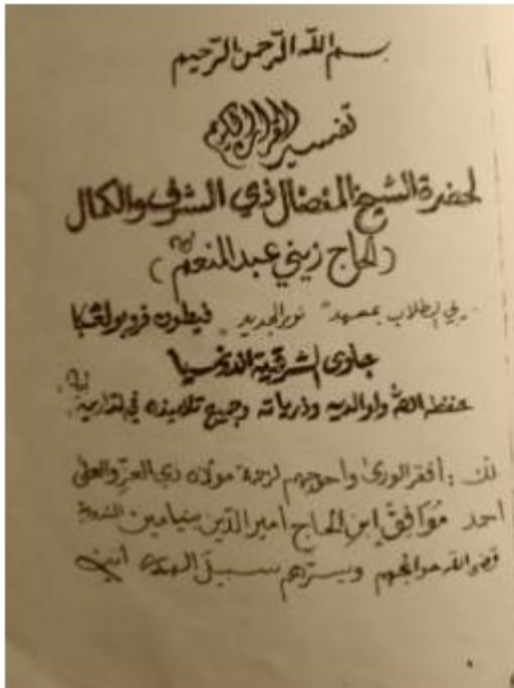 بسم الله الرحمن الرحيم
تفسير القرآن الكريم
لحضرة الشيخ المفضال ذي الشرف والكمال
(الحاج زيني عبد المنعم)
الطلاب بمعهد " نور الجديد " فيطون فروبولڠݢا
جاوى الشرقية اندونيسيا
حفظه الله ولوالديه وذرياته وجميع تلاميذه في الدارين
أفقر الورى وأحوجهم لرحمة مولاه ذي العز والعلى
احمد موافق ابن الحاج أمير الدين بنيامين
قضى الله حوائجهم ويسرهم سبيل الهدى آمين